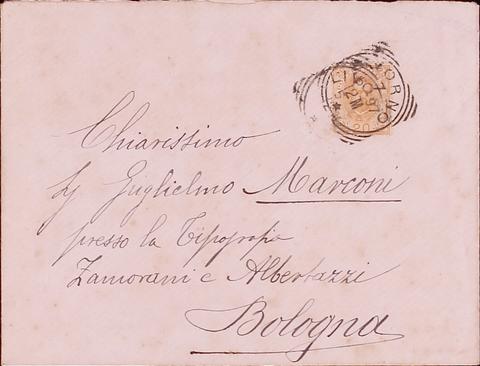 LIVORNO
7
97
2 M
20
Chiarissimo
Sig Guglielmo Marconi
presso la Tipografia
Zamorani e Albertazzi
Bologna